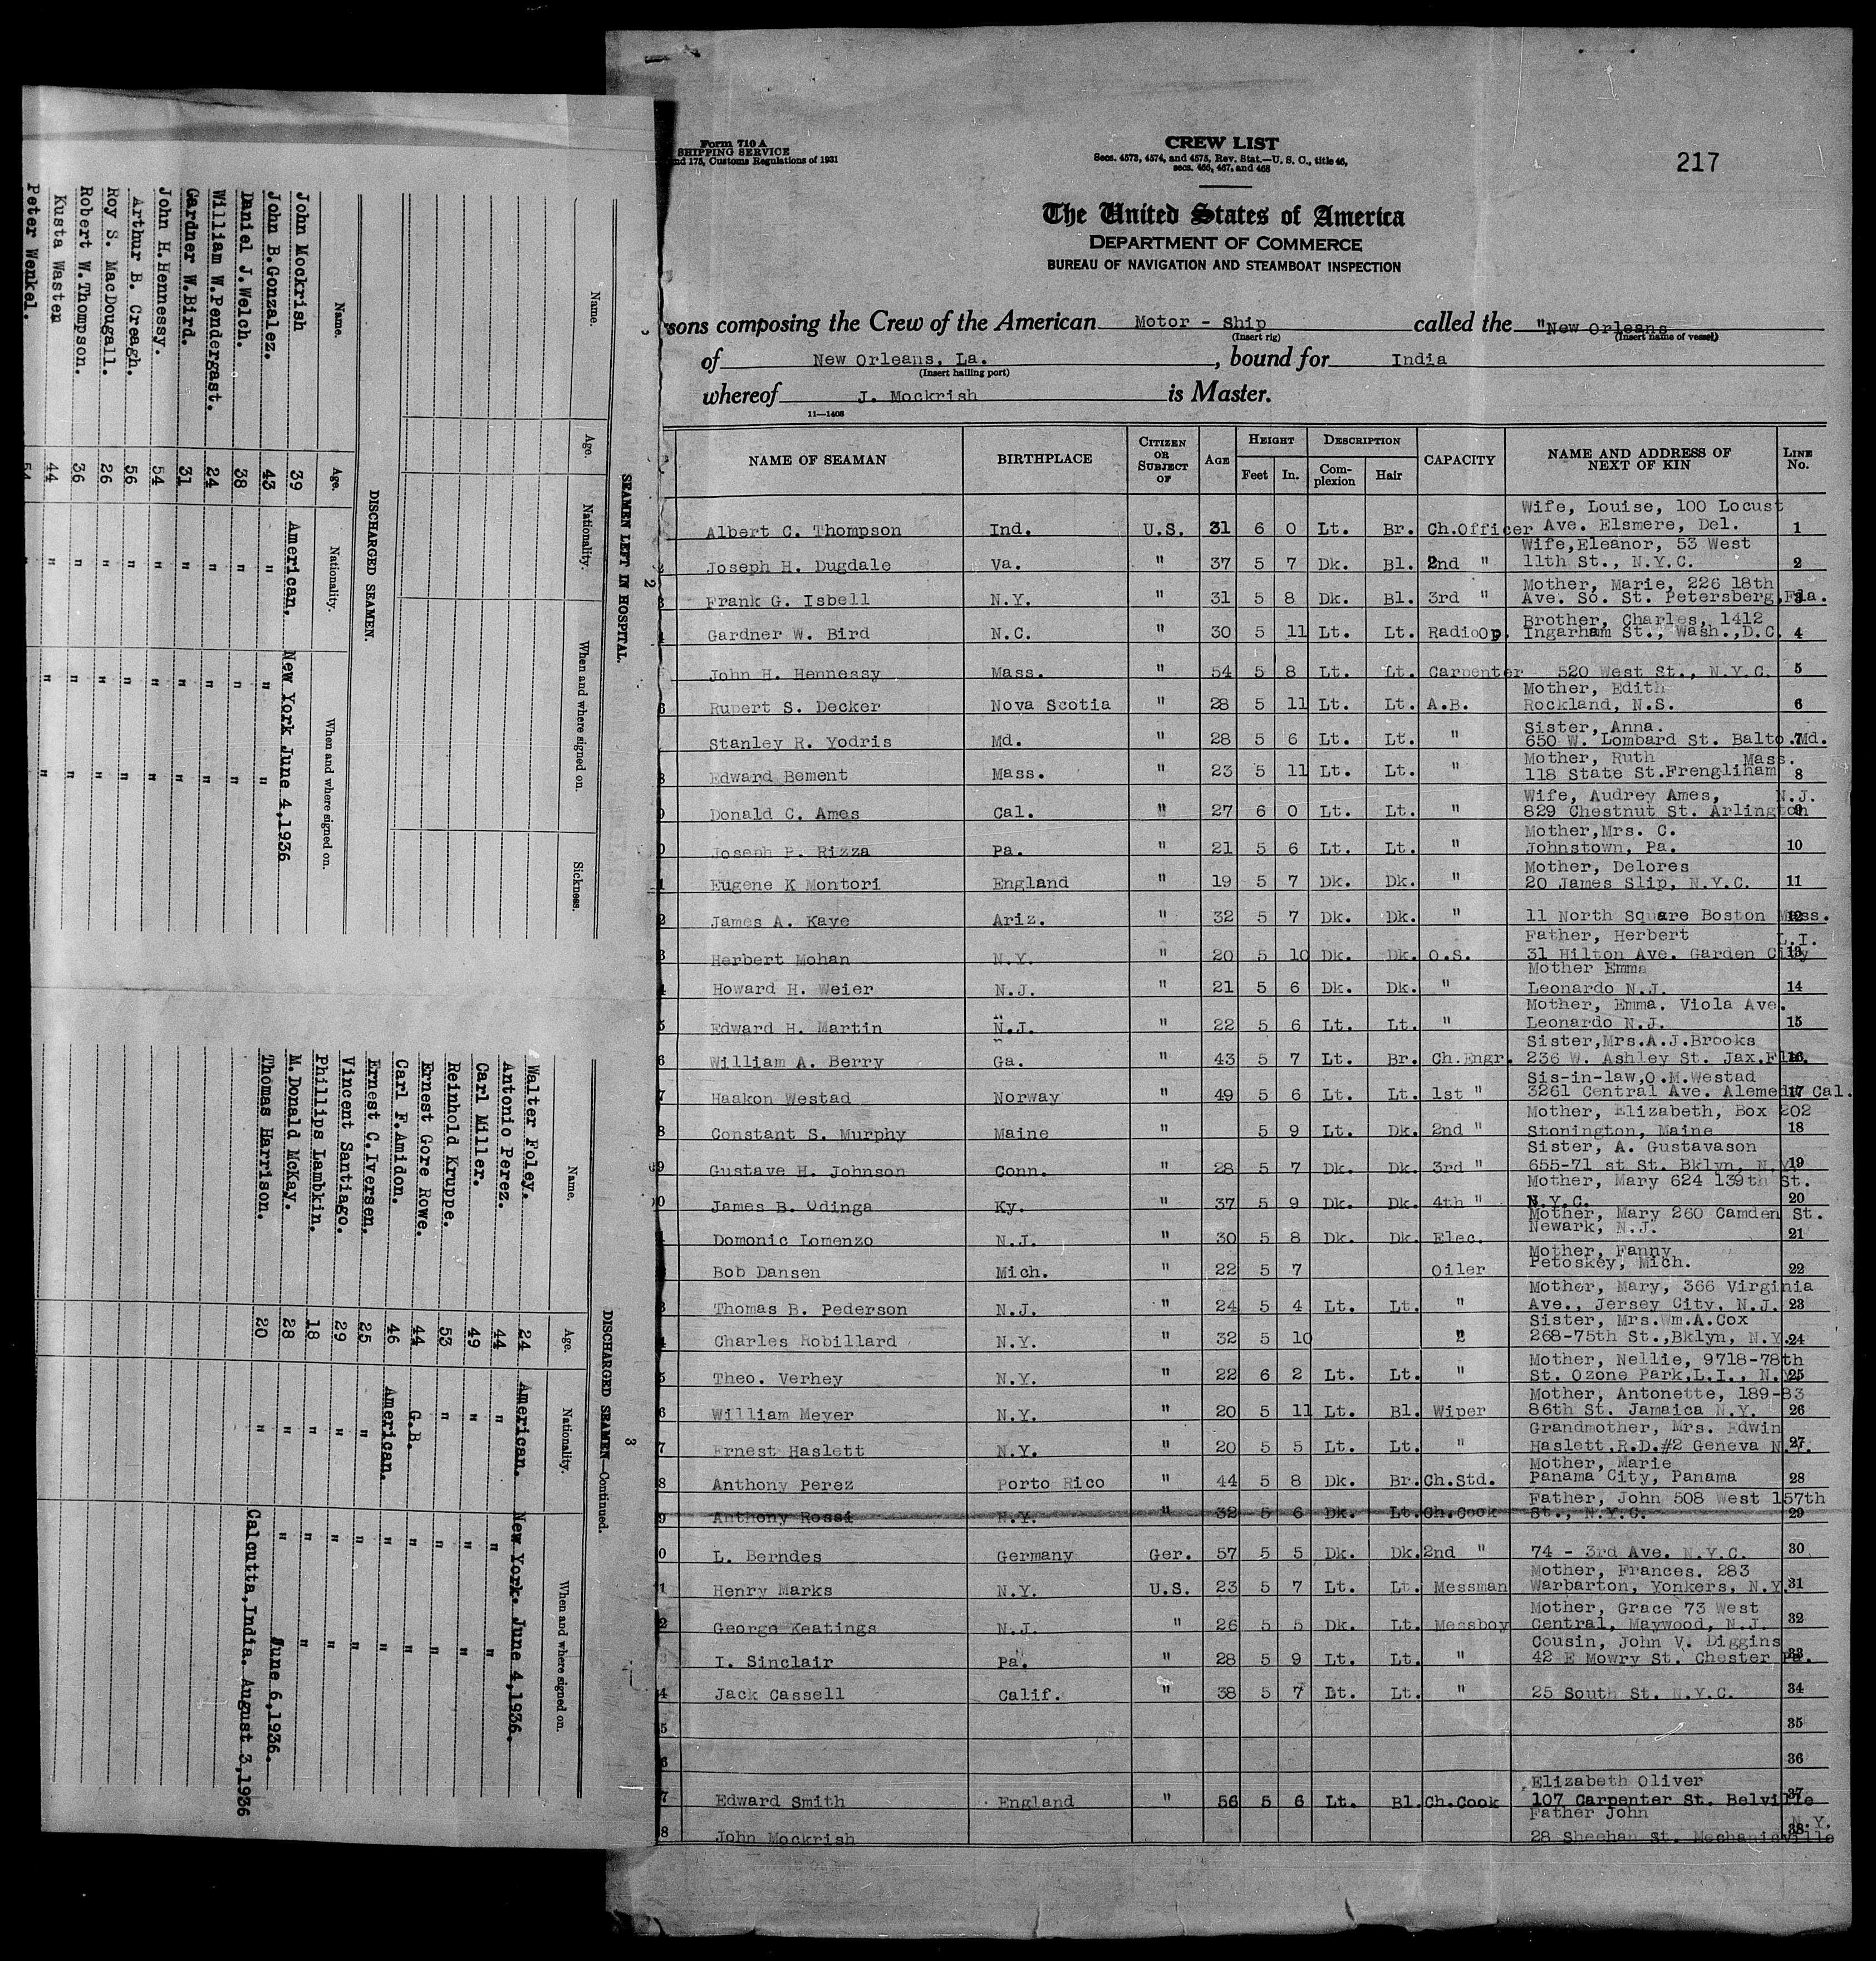 Form 710 A
SHIPPING SERVICE
nd 175, Customs Regulations of 1931
CREW LIST
Secs. 4573, 4574, and 4575, Rev. Stat.—U. S. C., title 46,
secs. 466, 467, and 468
217
The United States of America
DEPARTMENT OF COMMERCE
BUREAU OF NAVIGATION AND STEAMBOAT INSPECTION
rsons composing the Crew of the American Motor - Ship called the "New Orleans
(Insert rig) (Insert name of vessel)
of New Orleans, La. , bound for India
(Insert hailing port)
whereof J. Mockrish is Master.
11—1408
NAME OF SEAMAN BIRTHPLACE CITIZEN OR SUBJECT OF AGE HEIGHT Feet In. DESCRIPTION Complexion Hair CAPACITY NAME AND ADDRESS OF NEXT OF KIN LINE No.
Wife, Louise, 100 Locust
Albert C. Thompson Ind. U.S. 31 6 0 Lt. Br. Ch.Officer Ave. Elsmere, Del. 1
Wife,Eleanor, 53 West
Joseph H. Dugdale Va. " 37 5 7 Dk. Bl. 2nd " 11th St., N.Y.C. 2
Mother, Marie, 226 18th
Frank G. Isbell N.Y. " 31 5 8 Dk. Bl. 3rd " Ave. So. St. Petersberg,Fla. 3
Brother, Charles, 1412
Gardner W. Bird N.C. " 30 5 11 Lt. Lt. RadioOp. Ingarham St., Wash.,D.C. 4
John H. Hennessy Mass. " 54 5 8 Lt. Lt. Carpenter 520 West St., N.Y.C. 5
Mother, Edith
Rupert S. Decker Nova Scotia " 28 5 11 Lt. Lt. A.B. Rockland, N.S. 6
Sister, Anna.
Stanley R. Yodris Md. " 28 5 6 Lt. Lt. " 650 W. Lombard St. Balto.Md. 7
Mother, Ruth Mass.
Edward Bement Mass. " 23 5 11 Lt. Lt. " 118 State St.Frenglinam 8
Wife, Audrey Ames, N.J.
Donald C. Ames Cal. " 27 6 0 Lt. Lt. " 829 Chestnut St. Arlington 9
Mother,Mrs. C.
Joseph P. Rizza Pa. " 21 5 6 Lt. Lt. " Johnstown, Pa. 10
Mother, Delores
Eugene K Montori England " 19 5 7 Dk. Dk. " 20 James Slip, N.Y.C. 11
James A. Kaye Ariz. " 32 5 7 Dk. Dk. " 11 North Square Boston Mass. 12
Father, Herbert L.I.
Herbert Mohan N.Y. " 20 5 10 Dk. Dk. O.S. 31 Hilton Ave. Garden City 13
Mother Emma
Howard H. Weier N.J. " 21 5 6 Dk. Dk. " Leonardo N.J. 14
Mother, Emma. Viola Ave.
Edward H. Martin N.J. " 22 5 6 Lt. Lt. " Leonardo N.J. 15
Sister,Mrs.A.J.Brooks
William A. Berry Ga. " 43 5 7 Lt. Br. Ch.Engr. 236 W. Ashley St. Jax.Fla. 16
Sis-in-law,O.M.Westad
Haakon Westad Norway " 49 5 6 Lt. Lt. 1st " 3261 Central Ave. Alemeda Cal. 17
Mother, Elizabeth, Box 202
Constant S. Murphy Maine " 5 9 Lt. Dk. 2nd " Stonington, Maine 18
Sister, A. Gustavason
Gustave H. Johnson Conn. " 28 5 7 Dk. Dk. 3rd " 655-71 st St. Bklyn, N.Y. 19
Mother, Mary 624 139th St.
James B. Odinga Ky. " 37 5 9 Dk. Dk. 4th " N.Y.C. 20
Mother, Mary 260 Camden St.
Domonic Lomenzo N.J. " 30 5 8 Dk. Dk. Elec. Newark, N.J. 21
Mother, Fanny
Bob Dansen Mich. " 22 5 7 Oiler Petoskey, Mich. 22
Mother, Mary, 366 Virginia
Thomas B. Pederson N.J. " 24 5 4 Lt. Lt. " Ave., Jersey City, N.J. 23
Sister, Mrs.Wm.A.Cox
Charles Robillard N.Y. " 32 5 10 " 268-75th St.,Bklyn, N.Y. 24
Mother, Nellie, 9718-78th
Theo. Verhey N.Y. " 22 6 2 Lt. Lt. " St. Ozone Park,L.I., N.Y. 25
Mother, Antonette, 189-83
William Meyer N.Y. " 20 5 11 Lt. Bl. Wiper 86th St. Jamaica N.Y. 26
Grandmother, Mrs. Edwin
Ernest Haslett N.Y. " 20 5 5 Lt. Lt. " Haslett,R.D.#2 Geneva N.Y. 27
Mother, Marie
Anthony Perez Porto Rico " 44 5 8 Dk. Br. Ch.Std. Panama City, Panama 28
Father, John 508 West 157th
Anthony Rossi N.Y. " 32 5 6 Dk. Lt. Ch.Cook St., N.Y.C. 29
L. Berndes Germany Ger. 57 5 5 Dk. Dk. 2nd " 74 - 3rd Ave. N.Y.C. 30
Mother, Frances. 283
Henry Marks N.Y. U.S. 23 5 7 Lt. Lt. Messman Warbarton, Yonkers, N.Y. 31
Mother, Grace 73 West
George Keatings N.J. " 26 5 5 Dk. Lt. Messboy Central, Maywood, N.J. 32
Cousin, John V. Diggins
I. Sinclair Pa. " 28 5 9 Lt. Lt. " 42 E Mowry St. Chester Pa. 33
Jack Cassell Calif. " 38 5 7 Lt. Lt. " 25 South St. N.Y.C. 34
35
36
Elizabeth Oliver
Edward Smith England " 56 5 6 Lt. Bl. Ch.Cook 107 Carpenter St. Belville 37
Father John N.Y.
John Mockrish 28 Sheehan St. Mechanicville 38
2
SEAMEN LEFT IN HOSPITAL.
Name. Age. Nationality. When and where signed on. Sickness.
DISCHARGED SEAMEN.
Name. Age. Nationality. When and where signed on.
John Mockrish 39 American. New York June 4,1936
John B.Gonzalez. 43 " " "
Daniel J.Welch. 38 " " "
William W.Pendergast. 24 " " "
Gardner W.Bird. 31 " " "
John H.Hennessy. 54 " " "
Arthur B. Creagh. 56 " " "
Roy S. MacDougall. 26 " " "
Robert W.Thompson. 36 " " "
Kusta Wasten 44 " " "
Peter Wenkel. 54 "
3
DISCHARGED SEAMEN—Continued.
Name. Age. Nationality. When and where signed on.
Walter Foley. 24 American. New York. June 4,1936.
Antonio Perez. 44 " " "
Carl Miller. 49 " " "
Reinhold Kruppe. 53 " " "
Ernest Gore Rowe. 44 G.B. " "
Carl F.Amidon. 46 American. " "
Ernest C.Iversen. 25 " " "
Vincent Santiago. 29 " " "
Phillips Lambkin. 18 " " "
M.Donald McKay. 28 " " June 6,1936.
Thomas Harrison. 20 " Calcutta,India. August 3,1936